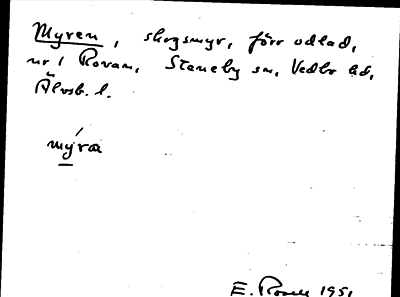 Myren, skogsmyr, förr odlad,
nr 1 Rovan, Steneby sn, Vedbo hd,
Älvsb. l.
mýra
E. 1951